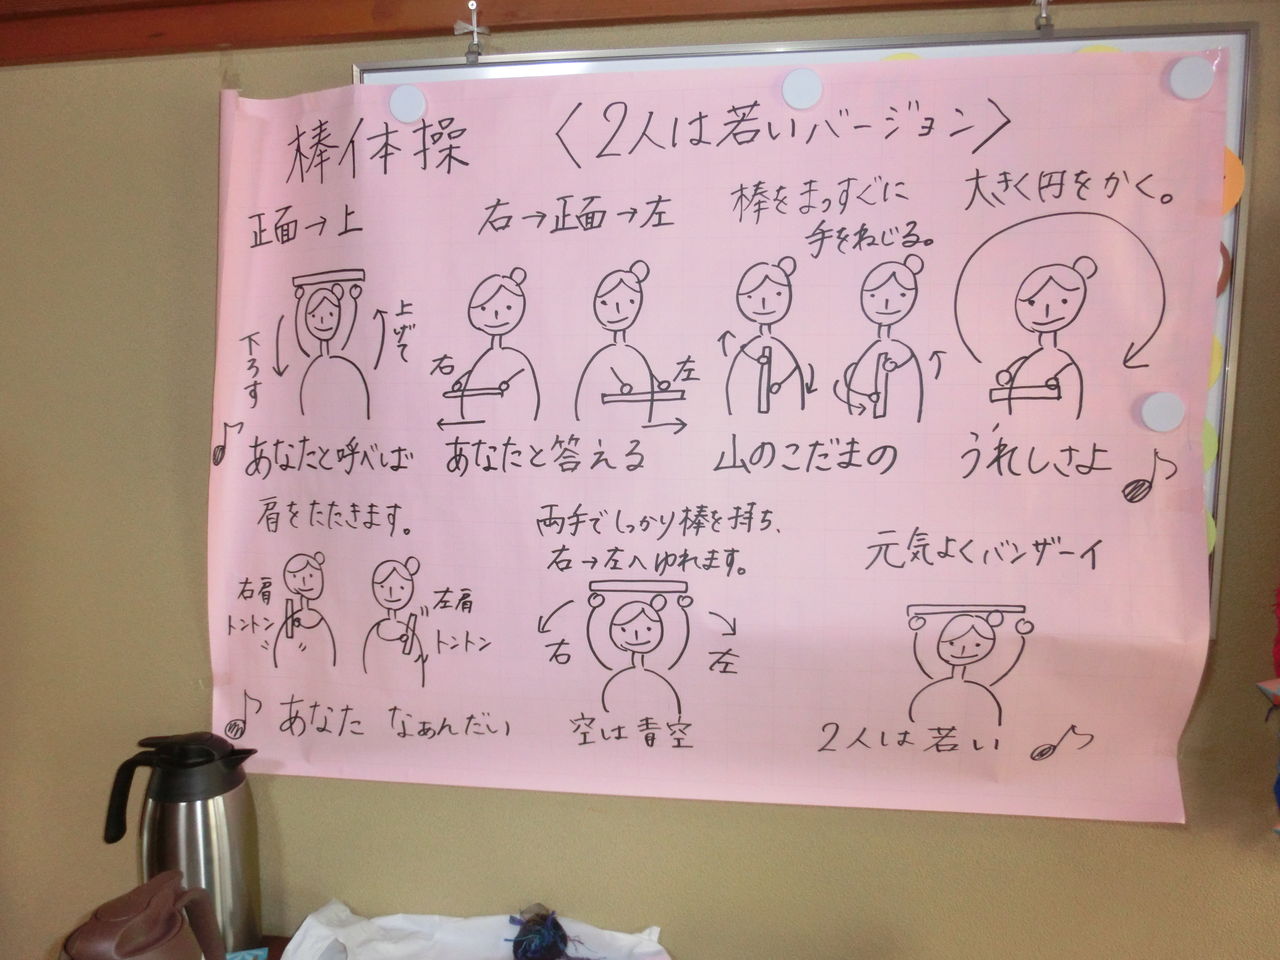 棒体操 〈2人は若いバージョン〉
正面→上
右→正面→左
棒をまっすぐに
手をねじる。
大きく円をかく。
下ろす
上げて
右
左
♪あなたと呼べば
あなたと答える
山のこだまの
うれしさよ♪
肩をたたきます。
両手でしっかり棒を持ち、
右→左へゆれます。
元気よくバンザーイ
右肩
トントン
左肩
トントン
右
左
♪あなた なぁんだい
空は青空
2人は若い♪